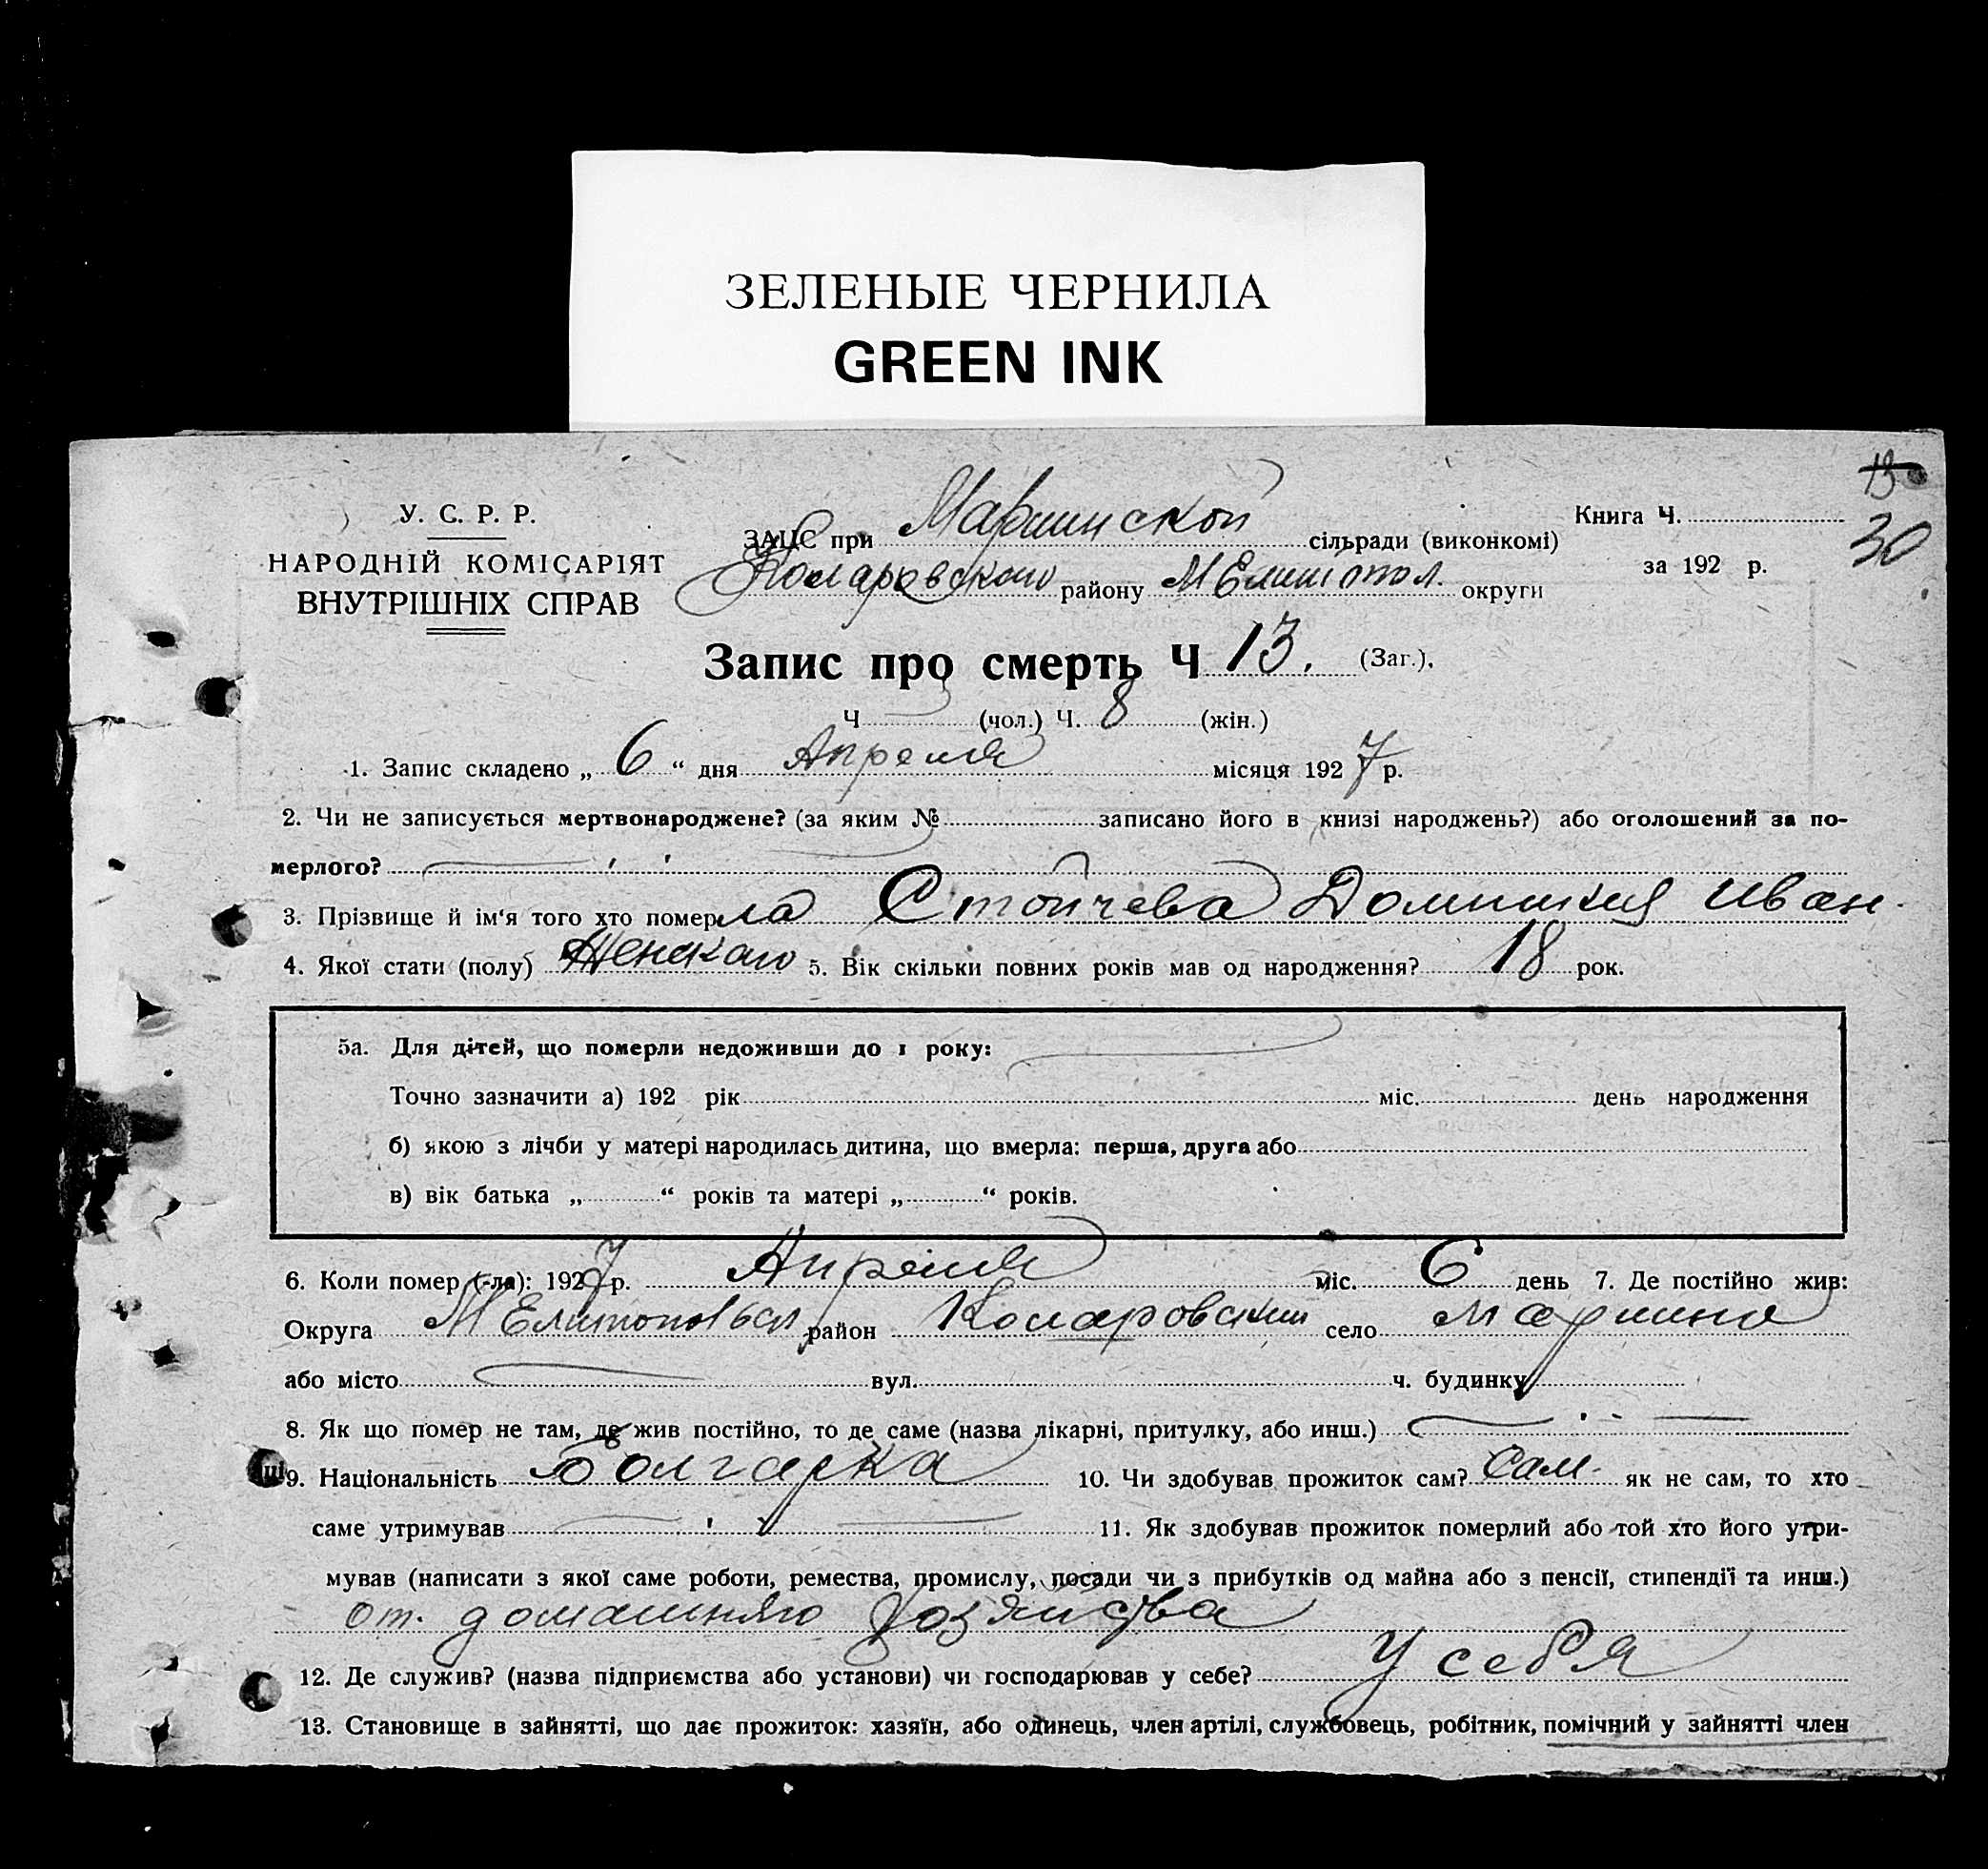 ЗЕЛЕНЫЕ ЧЕРНИЛА
GREEN INK
13
30
У. С. Р. Р.
НАРОДНІЙ КОМІСАРІЯТ
ВНУТРІШНІХ СПРАВ
ЗАЦС при Мариинской сільради (виконкомі)
Комаровского району Мелитопол. округи
Книга Ч.
за 192 р.
Запис про смерть Ч 13. (Заг.).
Ч (чол.) Ч. 8 (жін.)
1. Запис складено „ 6 “ дня Апреля місяця 1927 р.
2. Чи не записується мертвонароджене? (за яким № записано його в книзі народжень?) або оголошений за по-
мерлого?
3. Прізвище й ім'я того хто померла Стойчева Домникия Иван.
4. Якої стати (полу) Женскаго 5. Вік скільки повних років мав од народження? 18 рок.
5а. Для дітей, що померли недоживши до 1 року:
Точно зазначити а) 192 рік міс. день народження
б) якою з лічби у матері народилась дитина, що вмерла: перша, друга або
в) вік батька „ “ років та матері „ “ років.
6. Коли помер (-ла): 1927 р. Апреля міс. 6 день 7. Де постійно жив:
Округа Мелитопольск район Комаровский село Марином
або місто вул. ч. будинку
8. Як що помер не там, де жив постійно, то де саме (назва лікарні, притулку, або инш.)
9. Національність Болгарка 10. Чи здобував прожиток сам? Сам. як не сам, то хто
саме утримував 11. Як здобував прожиток померлий або той хто його утри-
мував (написати з якої саме роботи, ремества, промислу, посади чи з прибутків од майна або з пенсії, стипендії та инш.)
От. домашняго хозяйства
12. Де служив? (назва підприємства або установи) чи господарював у себе? У себя
13. Становище в зайнятті, що дає прожиток: хазяїн, або одинець, член артілі, службовець, робітник, помічний у зайнятті член